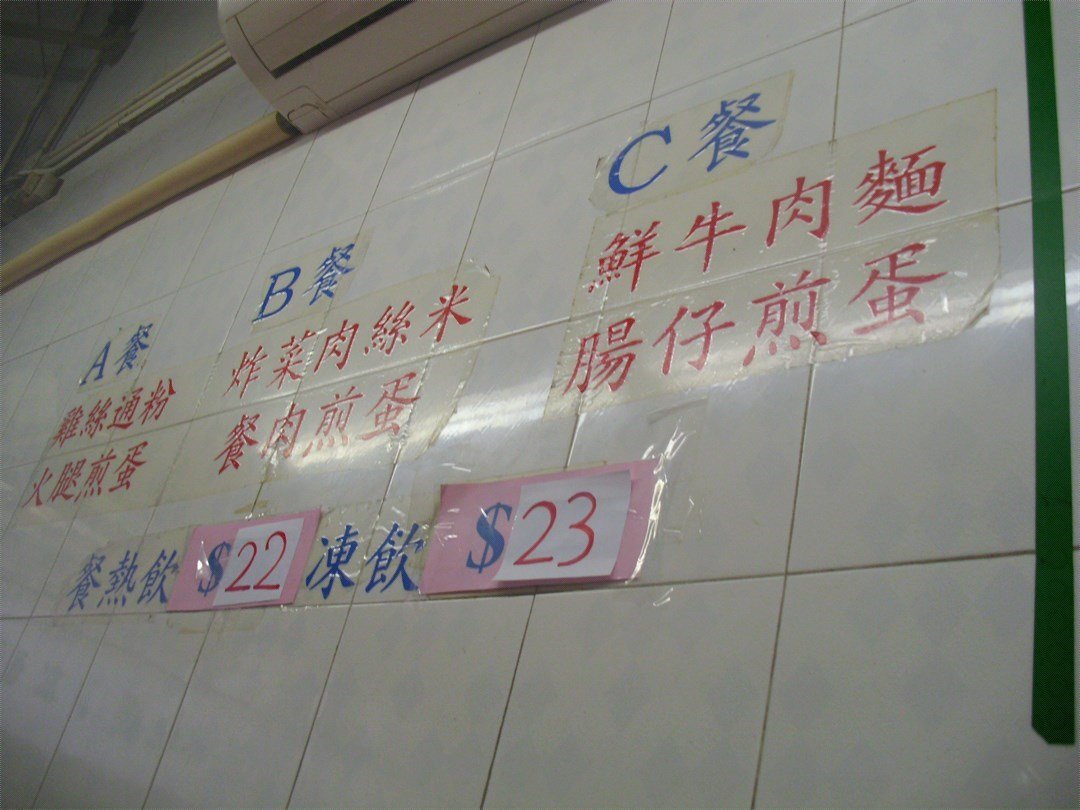 A餐
雞絲通粉
火腿煎蛋
B餐
炸菜肉絲米
餐肉煎蛋
C餐
鮮牛肉麵
腸仔煎蛋
餐熱飲 $22 凍飲 $23